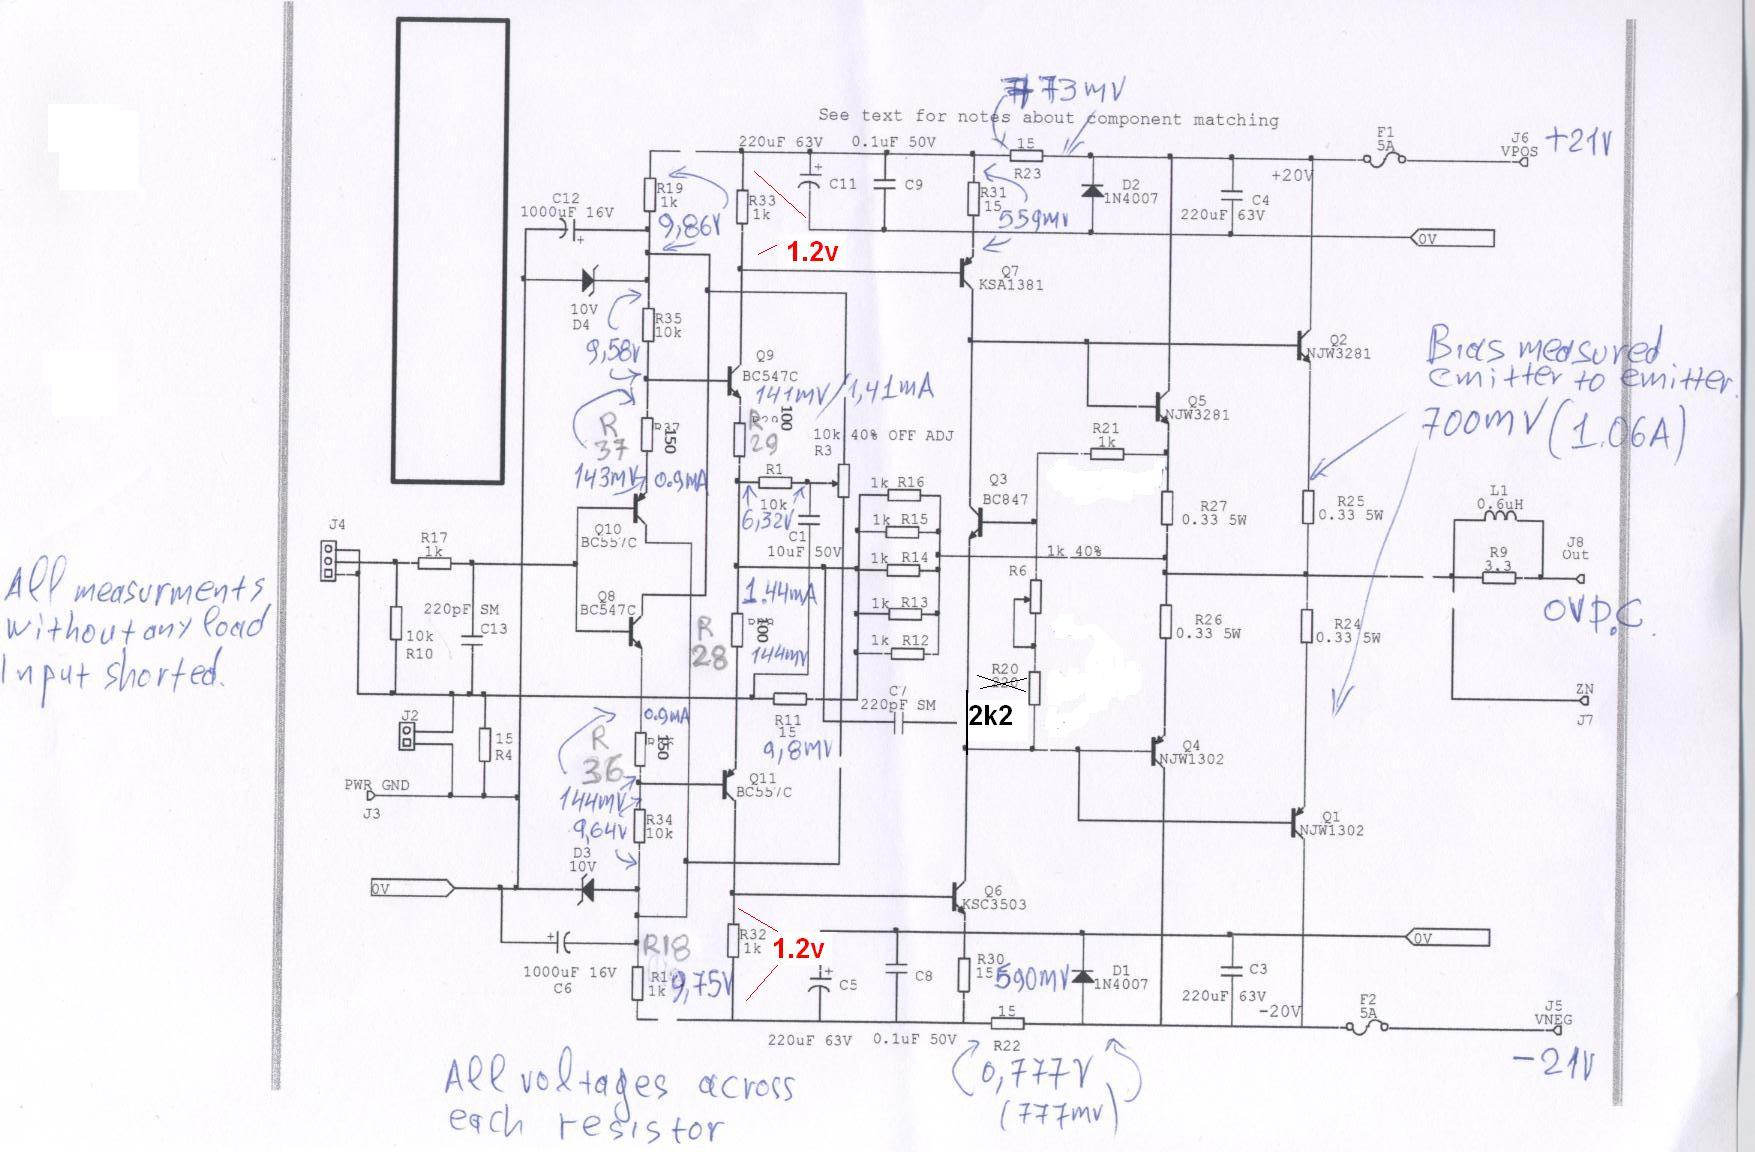 773mV
See text for notes about component matching
220uF 63V
0.1uF 50V
15
R23
F1
5A
J6
VPOS
+21V
+20V
C11
C9
D2
1N4007
C4
220uF 63V
R19
1k
9,86V
R33
1k
R31
15
559mV
C12
1000uF 16V
+
1.2v
0V
Q7
KSA1381
10V
D4
R35
10k
9,58V
Q9
BC547C
141mV/1,41mA
Q2
NJW3281
Bias measured
emitter to emitter.
700mV (1.06A)
Q5
NJW3281
R
37
R37
150
R
29
100
10k 40% OFF ADJ
R3
R21
1k
143mV
0.9mA
R1
10k
6,32V
1k R16
Q3
BC847
R27
0.33 5W
R25
0.33 5W
L1
0.6uH
J4
R17
1k
Q10
BC557C
C1
10uF 50V
1k R15
1k R14
1k 40%
R6
R9
3.3
J8
Out
All measurments
without any load
Input shorted.
220pF SM
C13
10k
R10
Q8
BC547C
1.44mA
R
28
100
144mV
1k R13
1k R12
R26
0.33 5W
R24
0.33 5W
0V D.C.
R20
220
2k2
C7
220pF SM
ZN
J7
J2
15
R4
0.9mA
R
36
150
R11
15
9,8mV
Q4
NJW1302
PWR GND
J3
144mV
9,64V
R34
10k
Q11
BC557C
Q1
NJW1302
D3
10V
0V
Q6
KSC3503
R18
1k
9,75V
R32
1k
1.2v
+
1000uF 16V
C6
+
C5
C8
R30
15
590mV
D1
1N4007
C3
220uF 63V
-20V
0V
F2
5A
J5
VNEG
-21V
220uF 63V
0.1uF 50V
15
R22
0,777V
(777mV)
All voltages across
each resistor